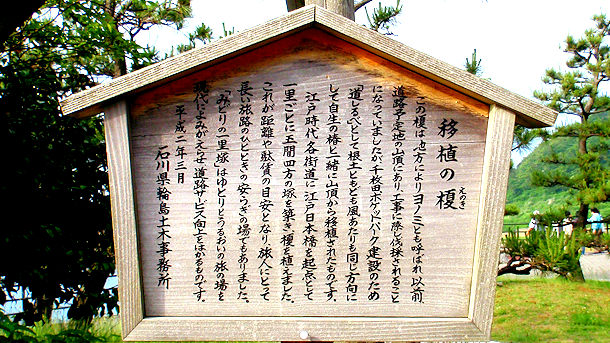 移植の榎
えのき
この榎は地方によりヨノミとも呼ばれ、以前、
道路予定地の山頂にあり、工事に際し伐採されること
になっていましたが、千枚田ポケットパーク建設のため
「道しるべ」として根土もとも風あたりも同じ方向に
して自生の椿と一緒に山頂から移植されたものです。
江戸時代各街道に江戸日本橋を起点として
一里ごとに五間四方の塚を築き榎を植えました。
これが距離や駄賃の目安となり、旅人にとって
長い旅路のひとときの安らぎの場でもありました。
「みどりの一里塚」はゆとりとうるおいの旅の場を
現代によみがえらせ道路サービス向上をはかるものです。
平成二年三月
石川県輪島土木事務所